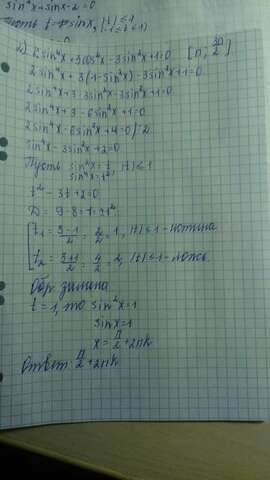 sin⁴x+sinx-2=0
Пусть t=sinx, |t|≤1
2sin⁴x+3cos²x-3sin²x+1=0 [π; 3π/2]
2sin⁴x+3(1-sin²x)-3sin²x+1=0
2sin⁴x+3-3sin²x-3sin²x+1=0
2sin⁴x+3-6sin²+1=0
2sin⁴x-6sin²x+4=0/:2
sin⁴x-3sin²x+2=0
Пусть sin²x=t, |t|≤1
sin⁴x=t²
t²-3t+2=0
D=9-8=1=1²
t₁=(3-1)/2=2/2=1, |t|≤1-истина
t₂=(3+1)/2=4/2=2, |t|≤1-ложь.
Обр замена
t=1, то sin²x=1
sinx=1
x=π/2+2πk
Ответ: π/2+2πk